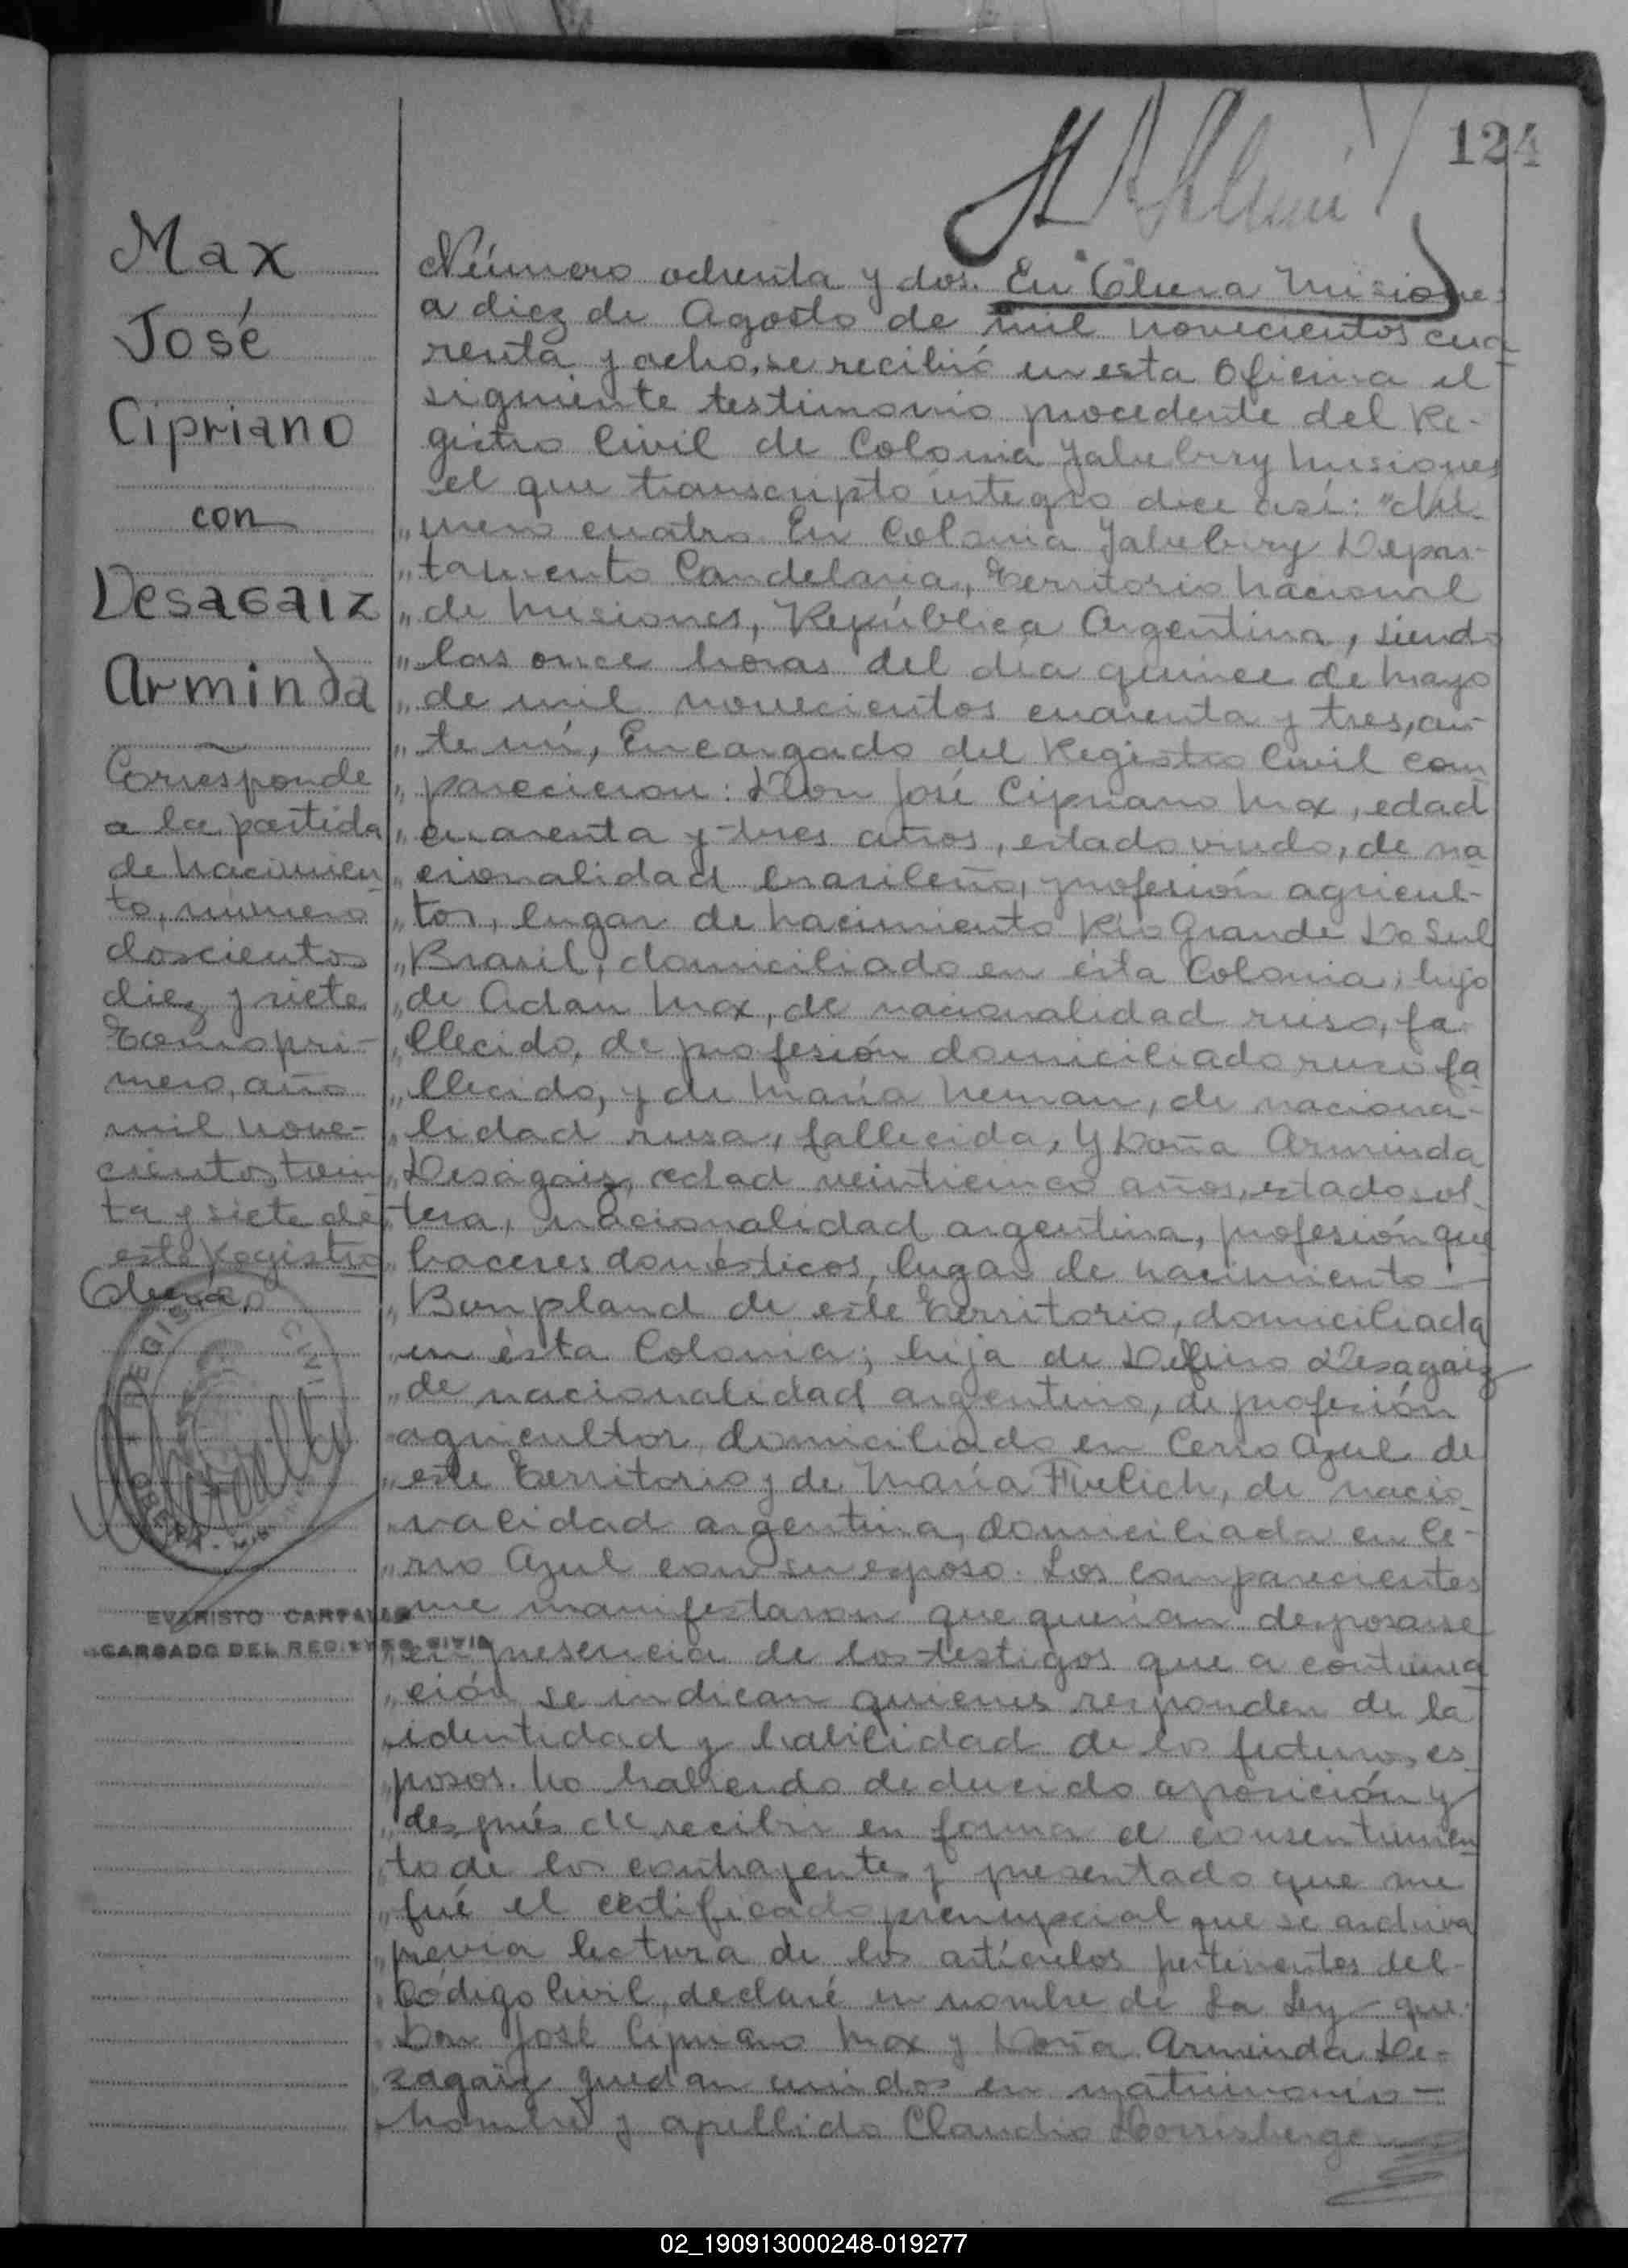 124
Max
José
Cipriano
con
Desagaiz
Arminda
Corresponde
a la partida
de nacimien
to, número
doscientos
diez y siete
Tomo pri-
mero, año
mil nove-
cientos trein
ta y siete de
este Registro
Oberá,
EVARISTO CARVALLO
CARGADO DEL REGISTRO CIVIL
Número ochenta y dos. En Oberá Misiones
a diez de Agosto de mil novecientos cua
renta y ocho, se recibió en esta Oficina el
siguiente testimonio procedente del Re-
gistro Civil de Colonia Yabebiry Misiones
el que transcripto integro dice asi: "Nú
" mero cuatro En Colonia Yabebiry Depar-
" tamento Candelaria, Territorio Nacional
" de Misiones, República Argentina, siendo
" las once horas del día quince de Mayo
" de mil novecientos cuarenta y tres, an-
" te mí, Encargado del Registro Civil com
" parecieron: Don José Cipriano Max, edad
" cuarenta y tres años, estado viudo, de na
" cionalidad brasileño, profesión agricul-
" tor, lugar de nacimiento Río Grande Do Sul
" Brasil, domiciliado en ésta Colonia; hijo
" de Adan Max, de nacionalidad ruso, fa
" llecido, de profesión domiciliado ruso fa
" llecido, y de María Neman, de naciona-
" lidad rusa, fallecida, Y Doña Arminda
" Desagaiz, edad veinticinco años, estado sol
" tera, nacionalidad argentina, profesión que
" haceres domésticos, lugar de nacimiento
" Bonpland de este Territorio, domiciliada
" en ésta Colonia; hija de Delfino Desagaiz
" de nacionalidad argentino, de profesión
" agricultor, domiciliado en Cerro Azul de
" este Territorio y de María Fwelich, de nacio
" nalidad argentina, domiciliada en Ce-
" rro Azul con su esposo. Los comparecientes
" me manifestaron que querian desposarse
" en presencia de los testigos que a continua
" ción se indican quienes responden de la
" identidad y habilidad de los futuros es
" posos. No habiendo deducido oposición y
" después de recibir en forma el consentimien
" to de los contrayentes y presentado que me
" fué el certificado prenupcial que se archiva
" previa lectura de los artículos pertinentes del
" Código Civil, declaré en nombre de La Ley que
" Don José Cipriano Max y Doña Arminda De-
" sagaiz quedan unidos en matrimonio
" Nombre y apellido Claudio
02_190913000248-019277